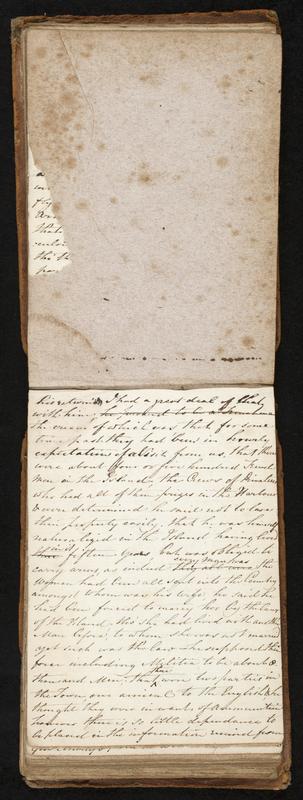 his returning I had a great deal of chat
with him, he
the cause of which was that for some
time past they had been in hourly
expectation of a visit from us, that there
were about four or five hundred French
men on the Island, the Crews of Privateers
who had all of them prizes in the Harbour
& were determined he said not to lose
their property easily, that he was himself
naturalized in the Island having lived
in it fifteen years but was obliged to
carry arms as indeed every man was the
Women had been all sent into the Country
amongst whom was his wife, he said he
had been forced to marry her by the laws
of the Island, tho' she had lived with another
Man before, to whom she was not married
yet such was the law he supposed the
force including Militia to be about 2
thousand Men, that there were two parties in
the Town one to the English & he
thought they were in want of Ammunition
however there is so little dependance to
be placed in the information received from